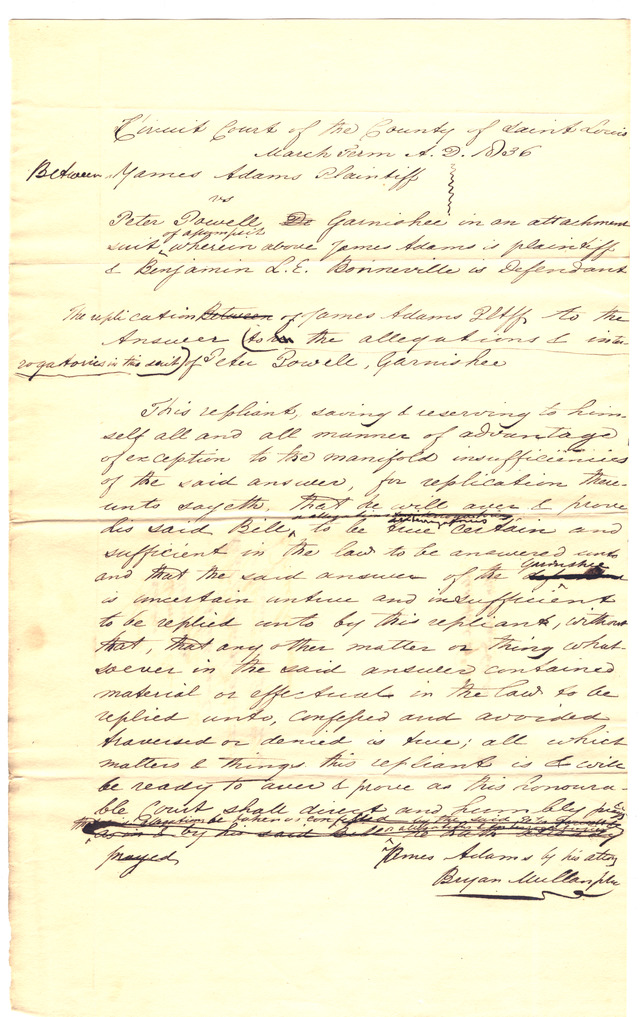 Circuit Court of the County of Saint Louis
March Term A. D. 1836
Between James Adams Plaintiff
vs
Peter Powell Garnishee in an attachment
of assumpsit
suit wherein above James Adams is plaintiff
& Benjamin L. E. Bonneville is Defendant
The replication Between of James Adams Pltff to the
Answer (to the allegations & inter
rogatories in this suit) of Peter Powell, Garnishee
This repliant, saving & reserving to him
self all and all manner of advantage
of exception to the manifold insufficiencies
of the said answer, for replication there
unto sayeth, that he will aver & prove
his said Bill to be true certain and
sufficient in the law to be answered unto
Garnishee
and that the said answer of the
is uncertain untrue and insufficient
to be replied unto by this repliant, without
that, that any other matter or thing what-
soever in the said answer contained
material or effectual in the law to be
replied unto, confessed and avoided
traversed or denied is true; all which
matters & things this repliant is & will
be ready to aver & prove as this honoura-
ble Court shall direct and humbly
by his said Bill
prayed James Adams by his atty
Bryan Mullanphy